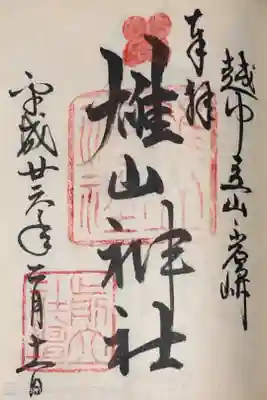 奉拝
越中立山岩峅
雄山神社
平成廿三年二月十二日